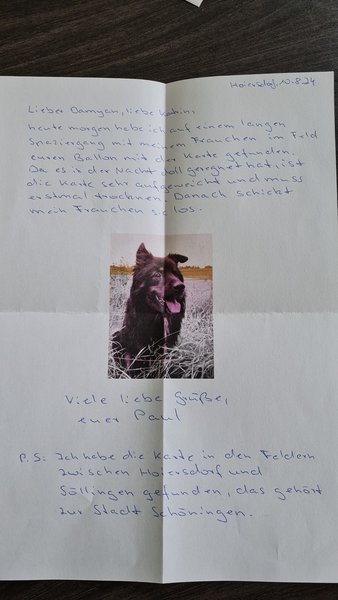 Hoiersdorf, 10.8.24
Lieber Damyan, liebe Katrin,
heute morgen habe ich auf einem langen
Spaziergang mit meinem Frauchen im Feld
euren Ballon mit der Karte gefunden.
Da es in der Nacht doll geregnet hat, ist
die Karte sehr aufgeweicht und muss
erstmal trocknen. Danach schickt
mein Frauchen sie los.
Viele liebe Grüße,
euer Paul
P.S: Ich habe die Karte in den Feldern
zwischen Hoiersdorf und
Söllingen gefunden, das gehört
zur Stadt Schöningen.